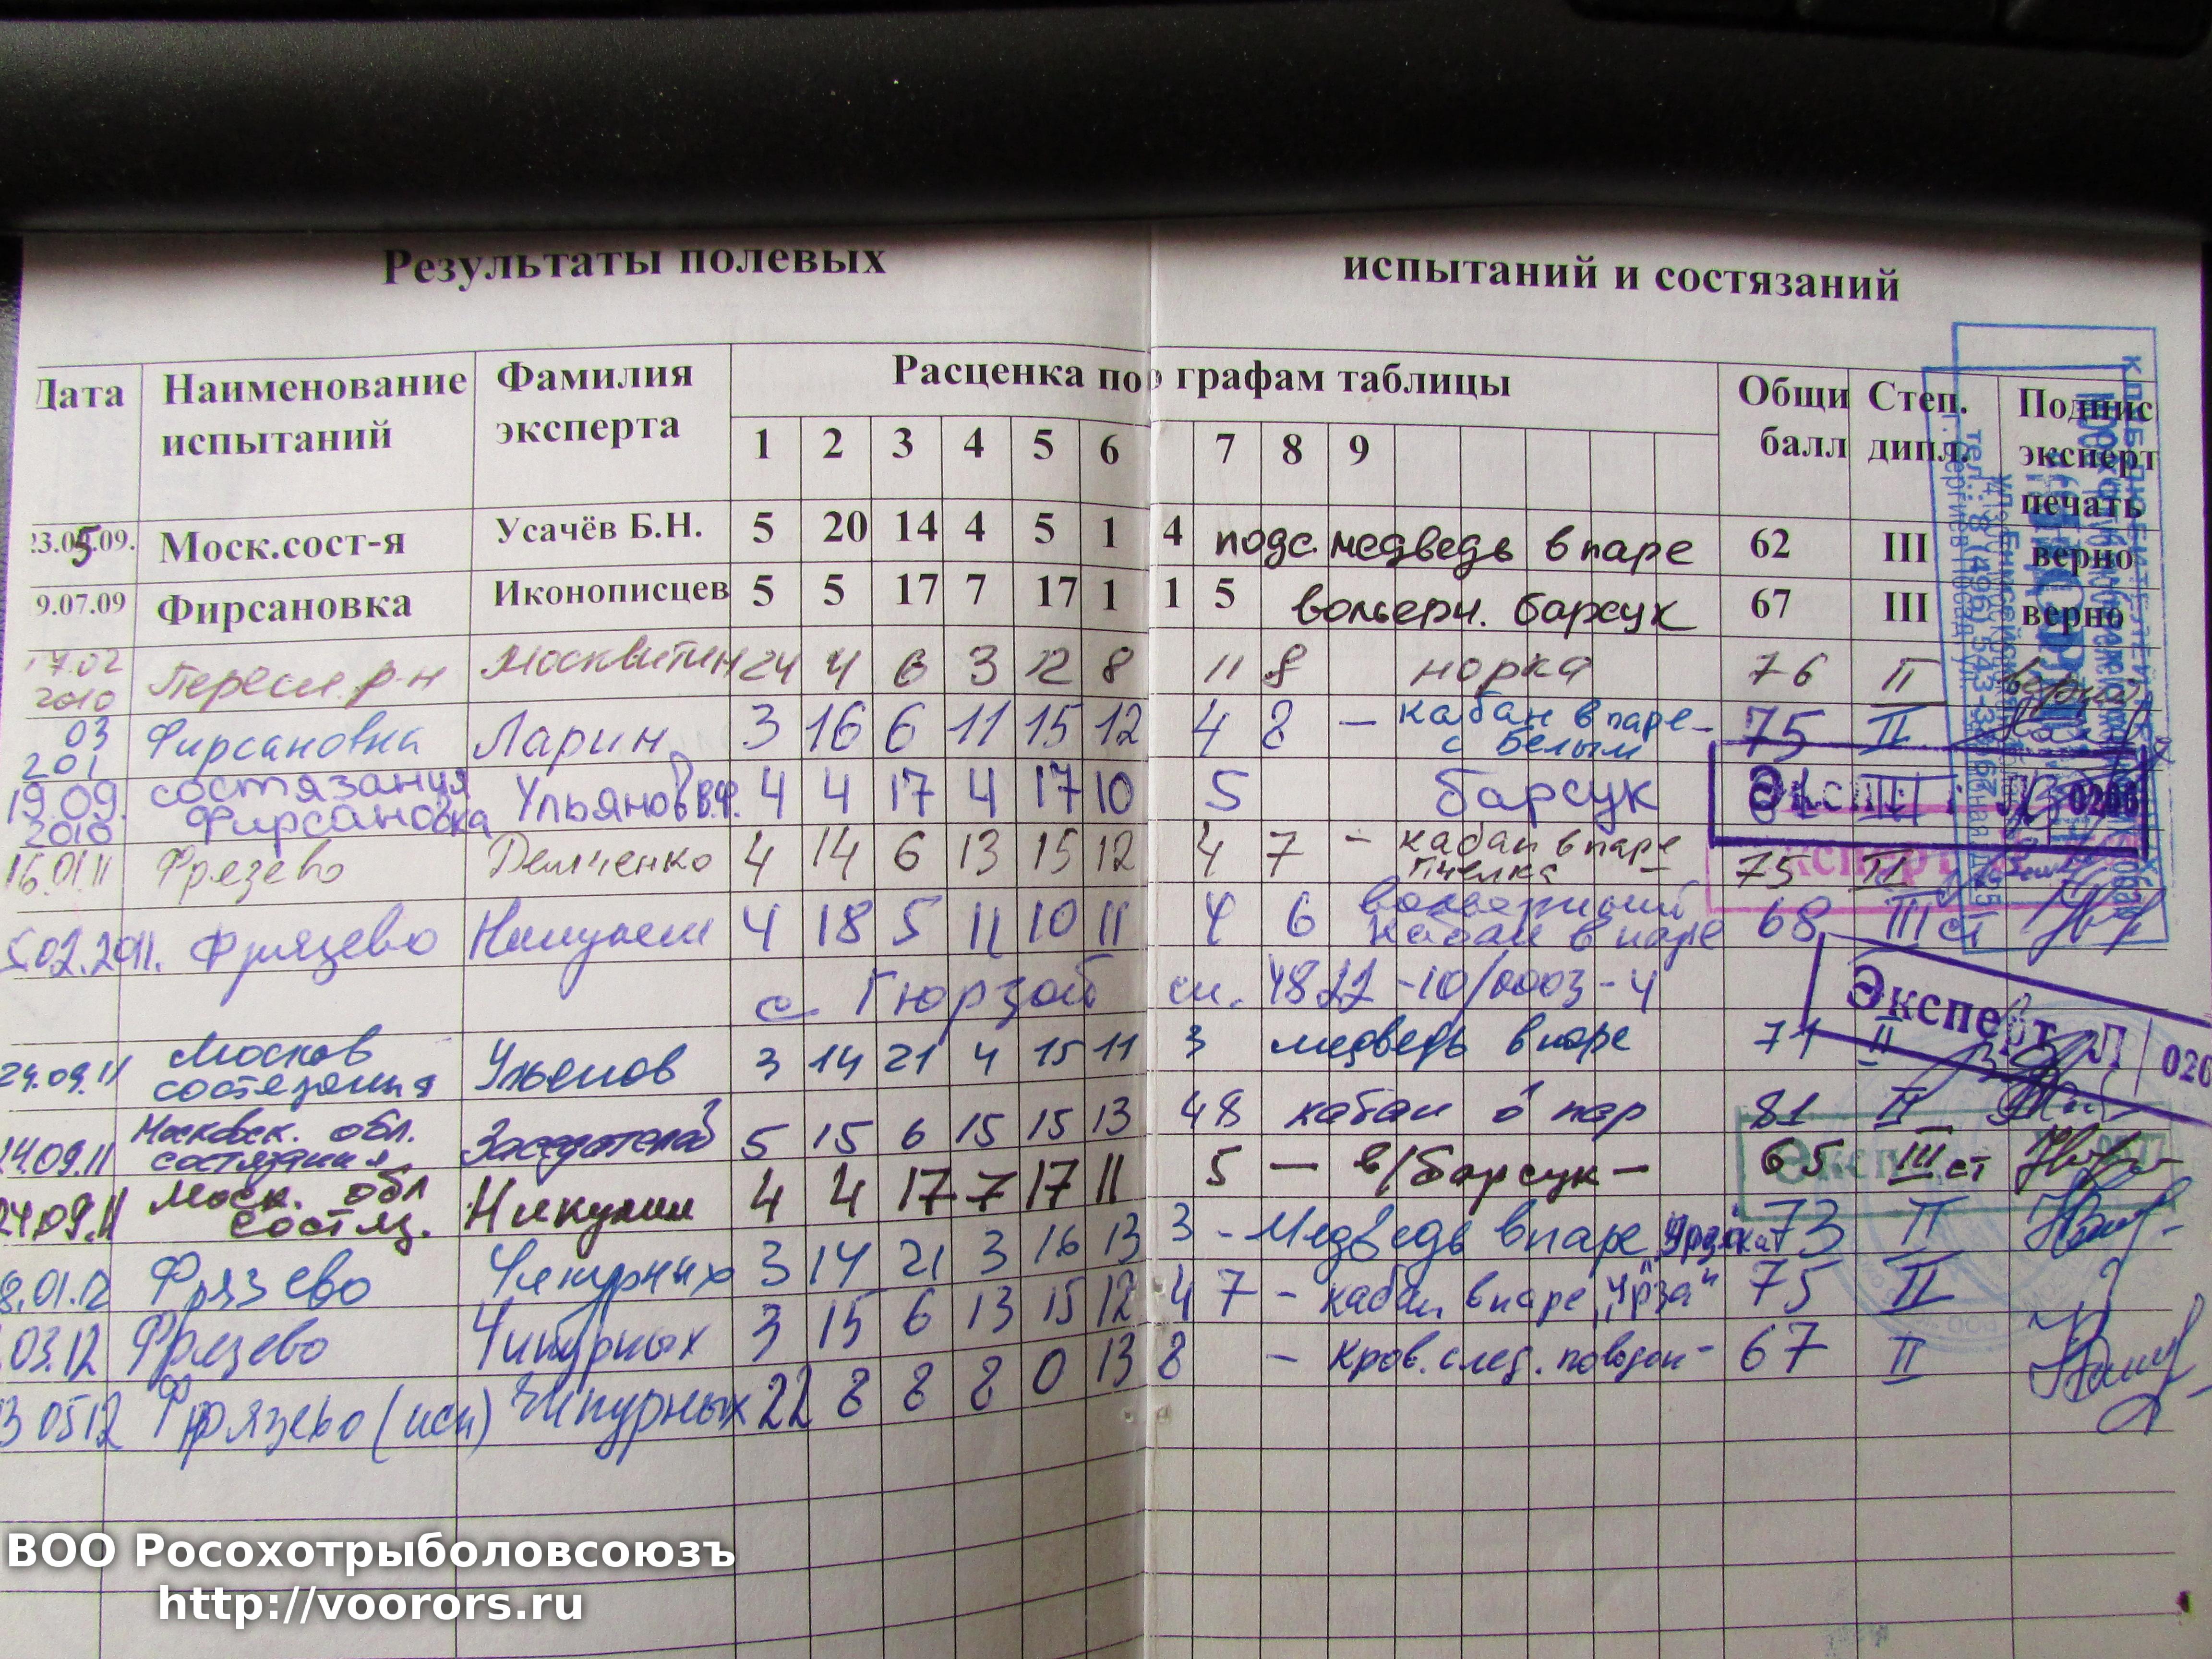 Результаты полевых испытаний и состязаний
Дата Наименование испытаний Фамилия эксперта Расценка по графам таблицы Общи балл Степ. дипл. Подпис эксперт печать
1 2 3 4 5 6 7 8 9
23.05.09. Моск.сост-я Усачёв Б.Н. 5 20 14 4 5 1 4 подс. медведь в паре 62 III верно
9.07.09 Фирсановка Иконописцев 5 5 17 7 17 1 1 5 вольерн. барсук 67 III верно
17.02 2010 Пересл. р-н Москвитин 24 4 6 3 12 8 11 8 норка 76 II
03 201 Фирсановка Ларин 3 16 6 11 15 12 4 8 – кабан в паре – с Белым 75 II
19.09. 2010 состязания Фирсановка Ульянов В.Ф. 4 4 17 4 17 10 5 барсук 61 III
16.01.11 Фрезево Демченко 4 14 6 13 15 12 4 7 – кабан в паре Пчелка – 75 II
5.02.2011. Фрязево Никулин 4 18 5 11 10 11 4 6 кабан в паре 68 III ст
с Гюрзой св. 4822-10/0003-4
24.09.11 Москов состязания Ульянов 3 14 21 4 15 11 3 медведь в паре 71 II
24.09.11 Московск. обл. состязания 5 15 6 15 15 13 4 8 кабан в пар 81 II
24.09.11 Моск. обл состяз. Никулин 4 4 17 7 17 11 5 – в/барсук – 65 III ст
8.01.12 Фрязево Чипурных 3 14 21 3 16 13 3 - Медведь в паре 73 II
03.12 Фрязево Чипурных 3 15 6 13 15 12 4 7 - кабан в паре 75 II
3 05 12 Фрязево (исп) Чипурных 22 8 8 8 0 13 8 – Кров. след. поводок – 67 II
Эксперт Л 020
ВОО Росохотрыболовсоюзъ
http://voorors.ru